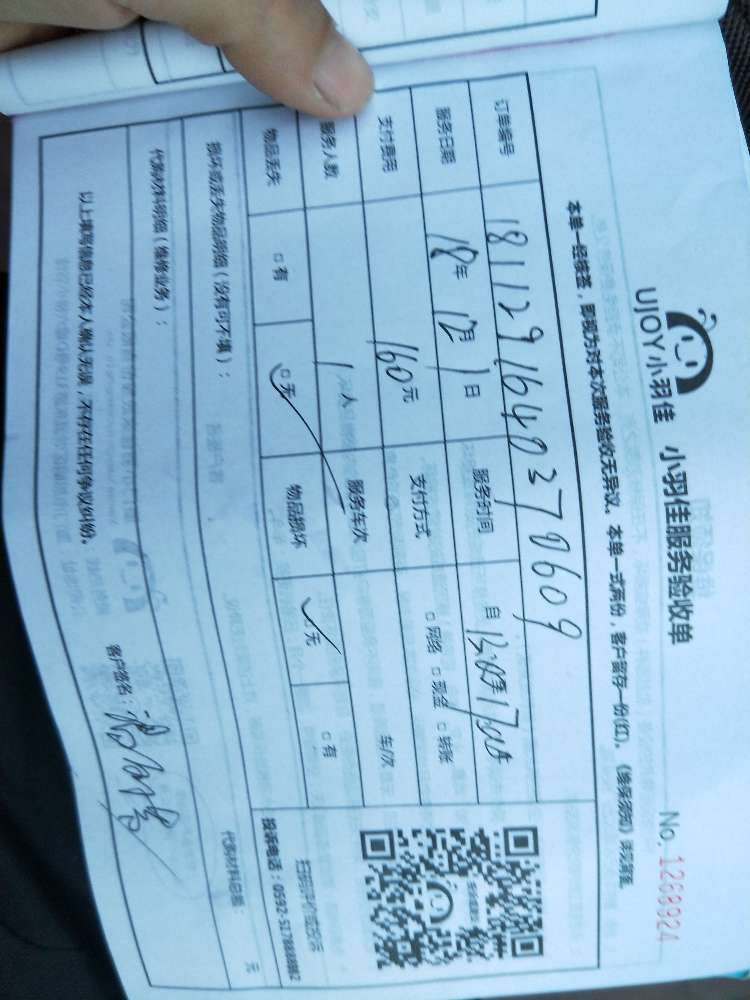 UJOY小羽佳 小羽佳服务验收单
No. 1268924
本单一经签签，即视为对本次服务验收无异议。本单一式两份，客户留存一份(红)。《维保须知》详见背面。
订单编号 181129164037860 9
服务日期 18年 12月 1日 服务时间 自 13:00至17:00
支付费用 160元 支付方式 □网络 □现金 □转账
服务人数 1人 服务车次 车/次
物品丢失 □有 □无 物品损坏 □无 □有
损坏或丢失物品明细（没有可不填）：
扫码评价或投诉
投诉电话：0592-5178888转2
代购材料明细（维修业务）：
代购材料总额： 元
以上填写信息已经本人确认无误，不存在任何争议纠纷。
客户签名：